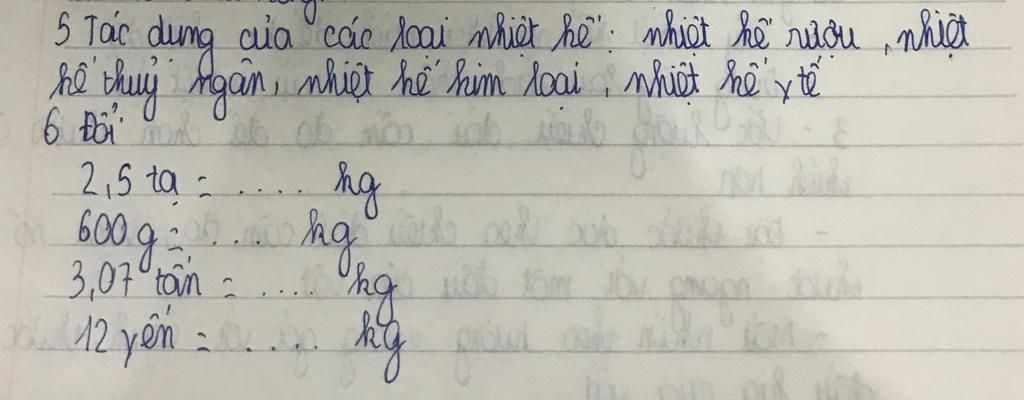 5 Tác dụng của các loại nhiệt kế: nhiệt kế rượu, nhiệt
kế thuỷ ngân, nhiệt kế kim loại, nhiệt kế y tế
6 Đổi
2,5 tạ = .... kg
600 g = .... kg
3,07 tấn = .... kg
12 yến = .... kg